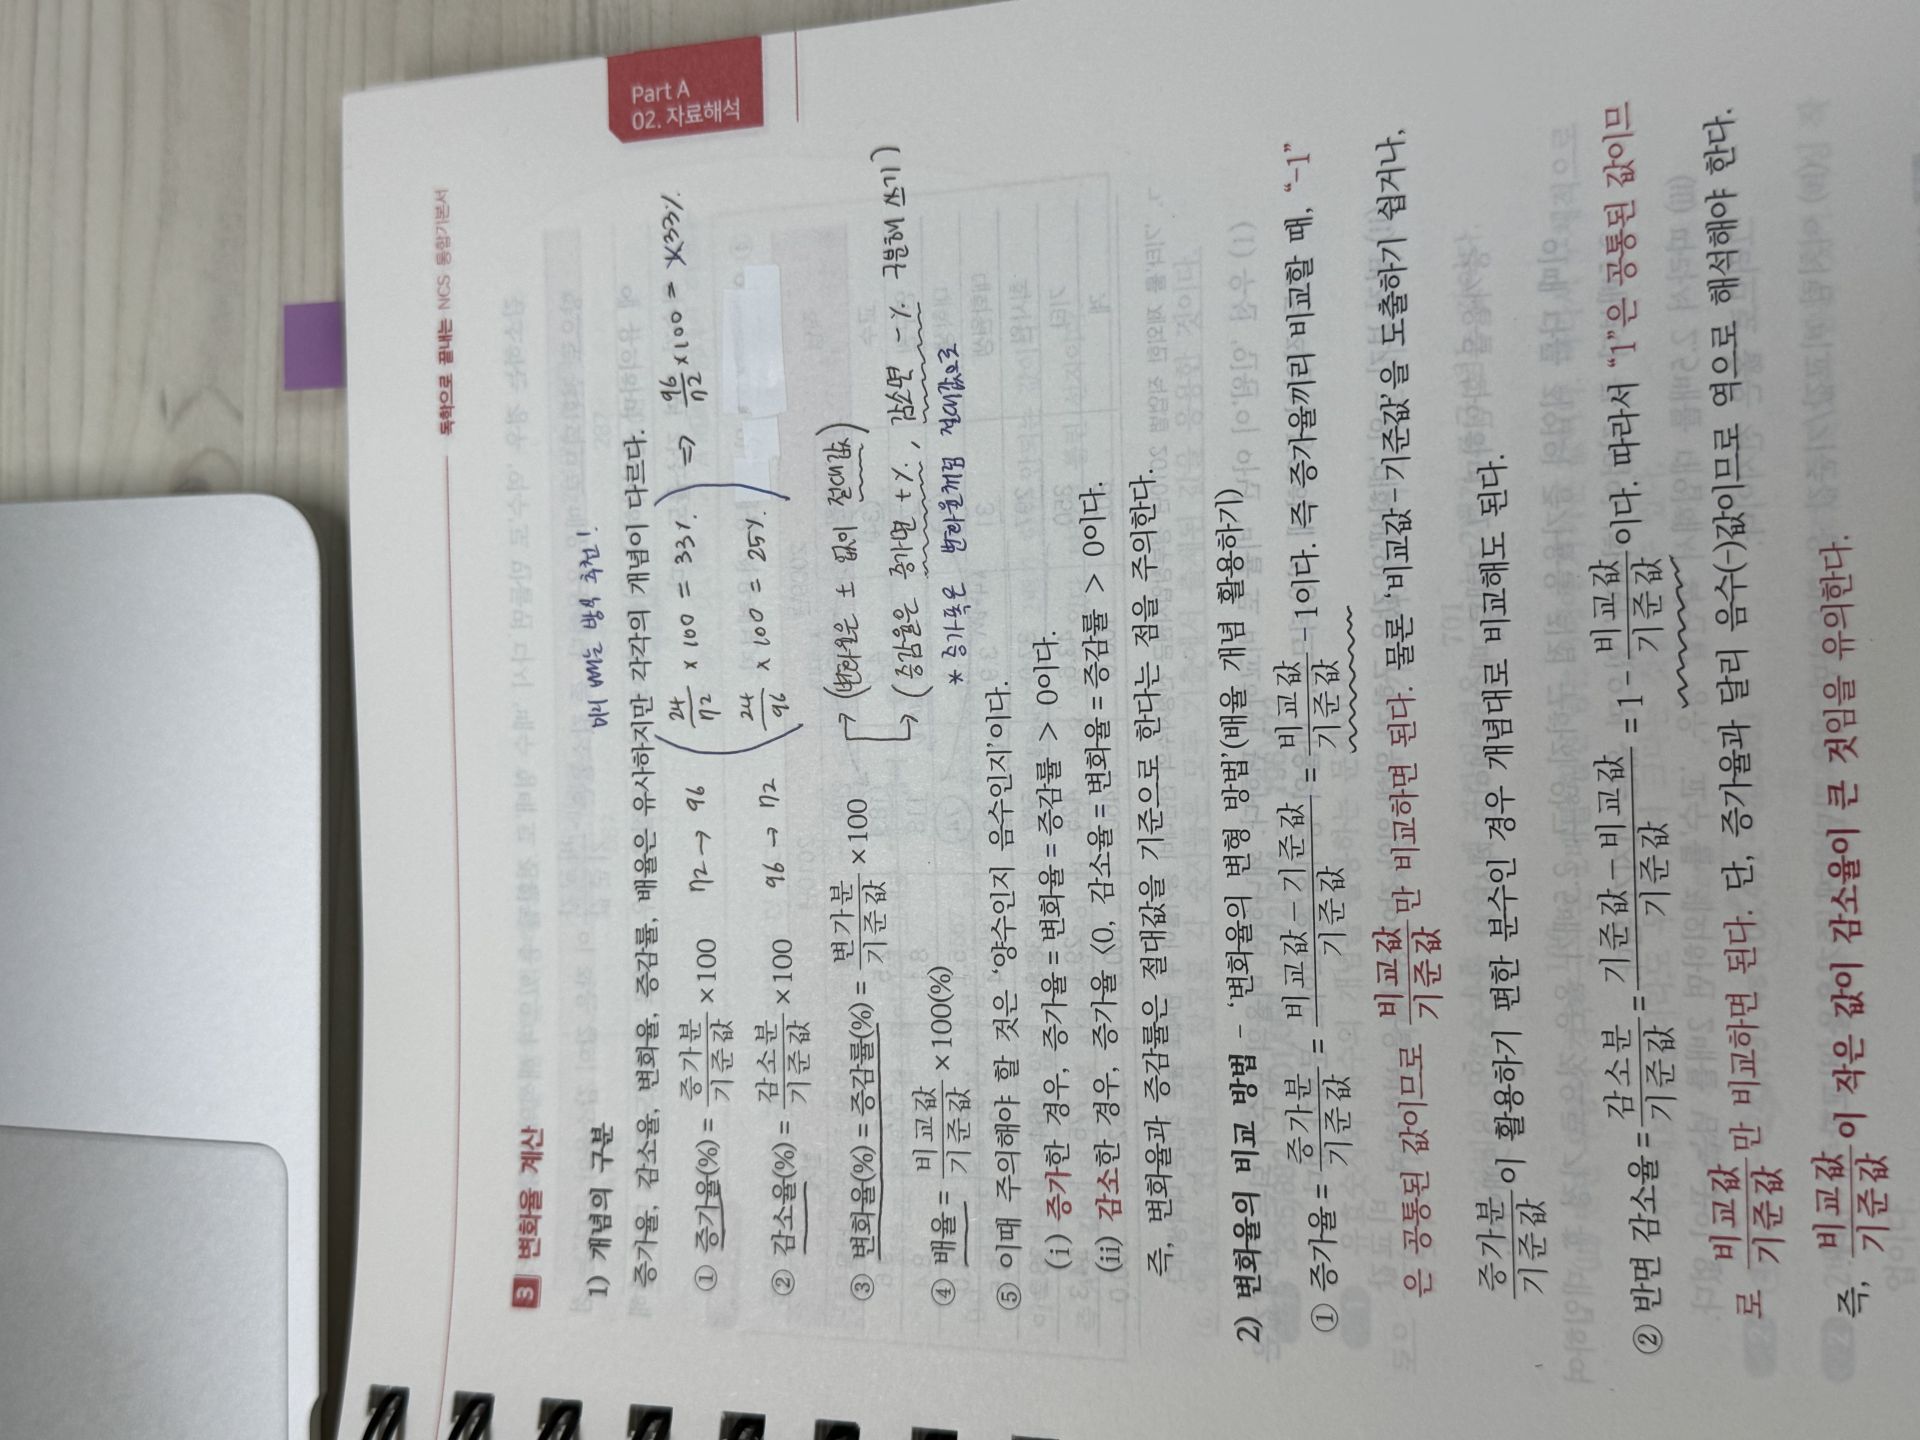 독학으로 끝내는 NCS 통합기본서
Part A
02. 자료해석
3 변화율 계산
미리 빼는 방식 추천!
1) 개념의 구분
증가율, 감소율, 변화율, 증감률, 배율은 유사하지만 각각의 개념이 다르다.
① 증가율(%) = 증가분/기준값 ×100 72 → 96 ( 24/72 × 100 = 33%. ) ⇒ 96/72 × 100 = 133%.
② 감소율(%) = 감소분/기준값 ×100 96 → 72 ( 24/96 × 100 = 25%. )
③ 변화율(%) = 증감률(%) = 변가분/기준값 ×100
→ (변화율은 ± 없이 절대값)
→ (증감율은 증가면 +%, 감소면 -%. 구분해 쓰기)
* 증가폭은 변화율처럼 절대값으로
④ 배율 = 비교값/기준값 ×100(%)
⑤ 이때 주의해야 할 것은 ‘양수인지 음수인지’이다.
(i) 증가한 경우, 증가율 = 변화율 = 증감률 > 0이다.
(ii) 감소한 경우, 증가율 <0, 감소율 = 변화율 = 증감률 > 0이다.
즉, 변화율과 증감률은 절대값을 기준으로 한다는 점을 주의한다.
2) 변화율의 비교 방법 - ‘변화율의 변형 방법’(배율 개념 활용하기)
① 증가율 = 증가분/기준값 = 비교값-기준값/기준값 = 비교값/기준값 - 1이다. 즉 증가율끼리 비교할 때, “-1”
은 공통된 값이므로 비교값/기준값만 비교하면 된다. 물론 ‘비교값-기준값’을 도출하기 쉽거나,
증가분/기준값이 활용하기 편한 분수인 경우 개념대로 비교해도 된다.
② 반면 감소율 = 감소분/기준값 = 기준값-비교값/기준값 = 1 - 비교값/기준값이다. 따라서 “1”은 공통된 값이므
로 비교값/기준값만 비교하면 된다. 단, 증가율과 달리 음수(-)값이므로 역으로 해석해야 한다.
즉, 비교값/기준값이 작은 값이 감소율이 큰 것임을 유의한다.